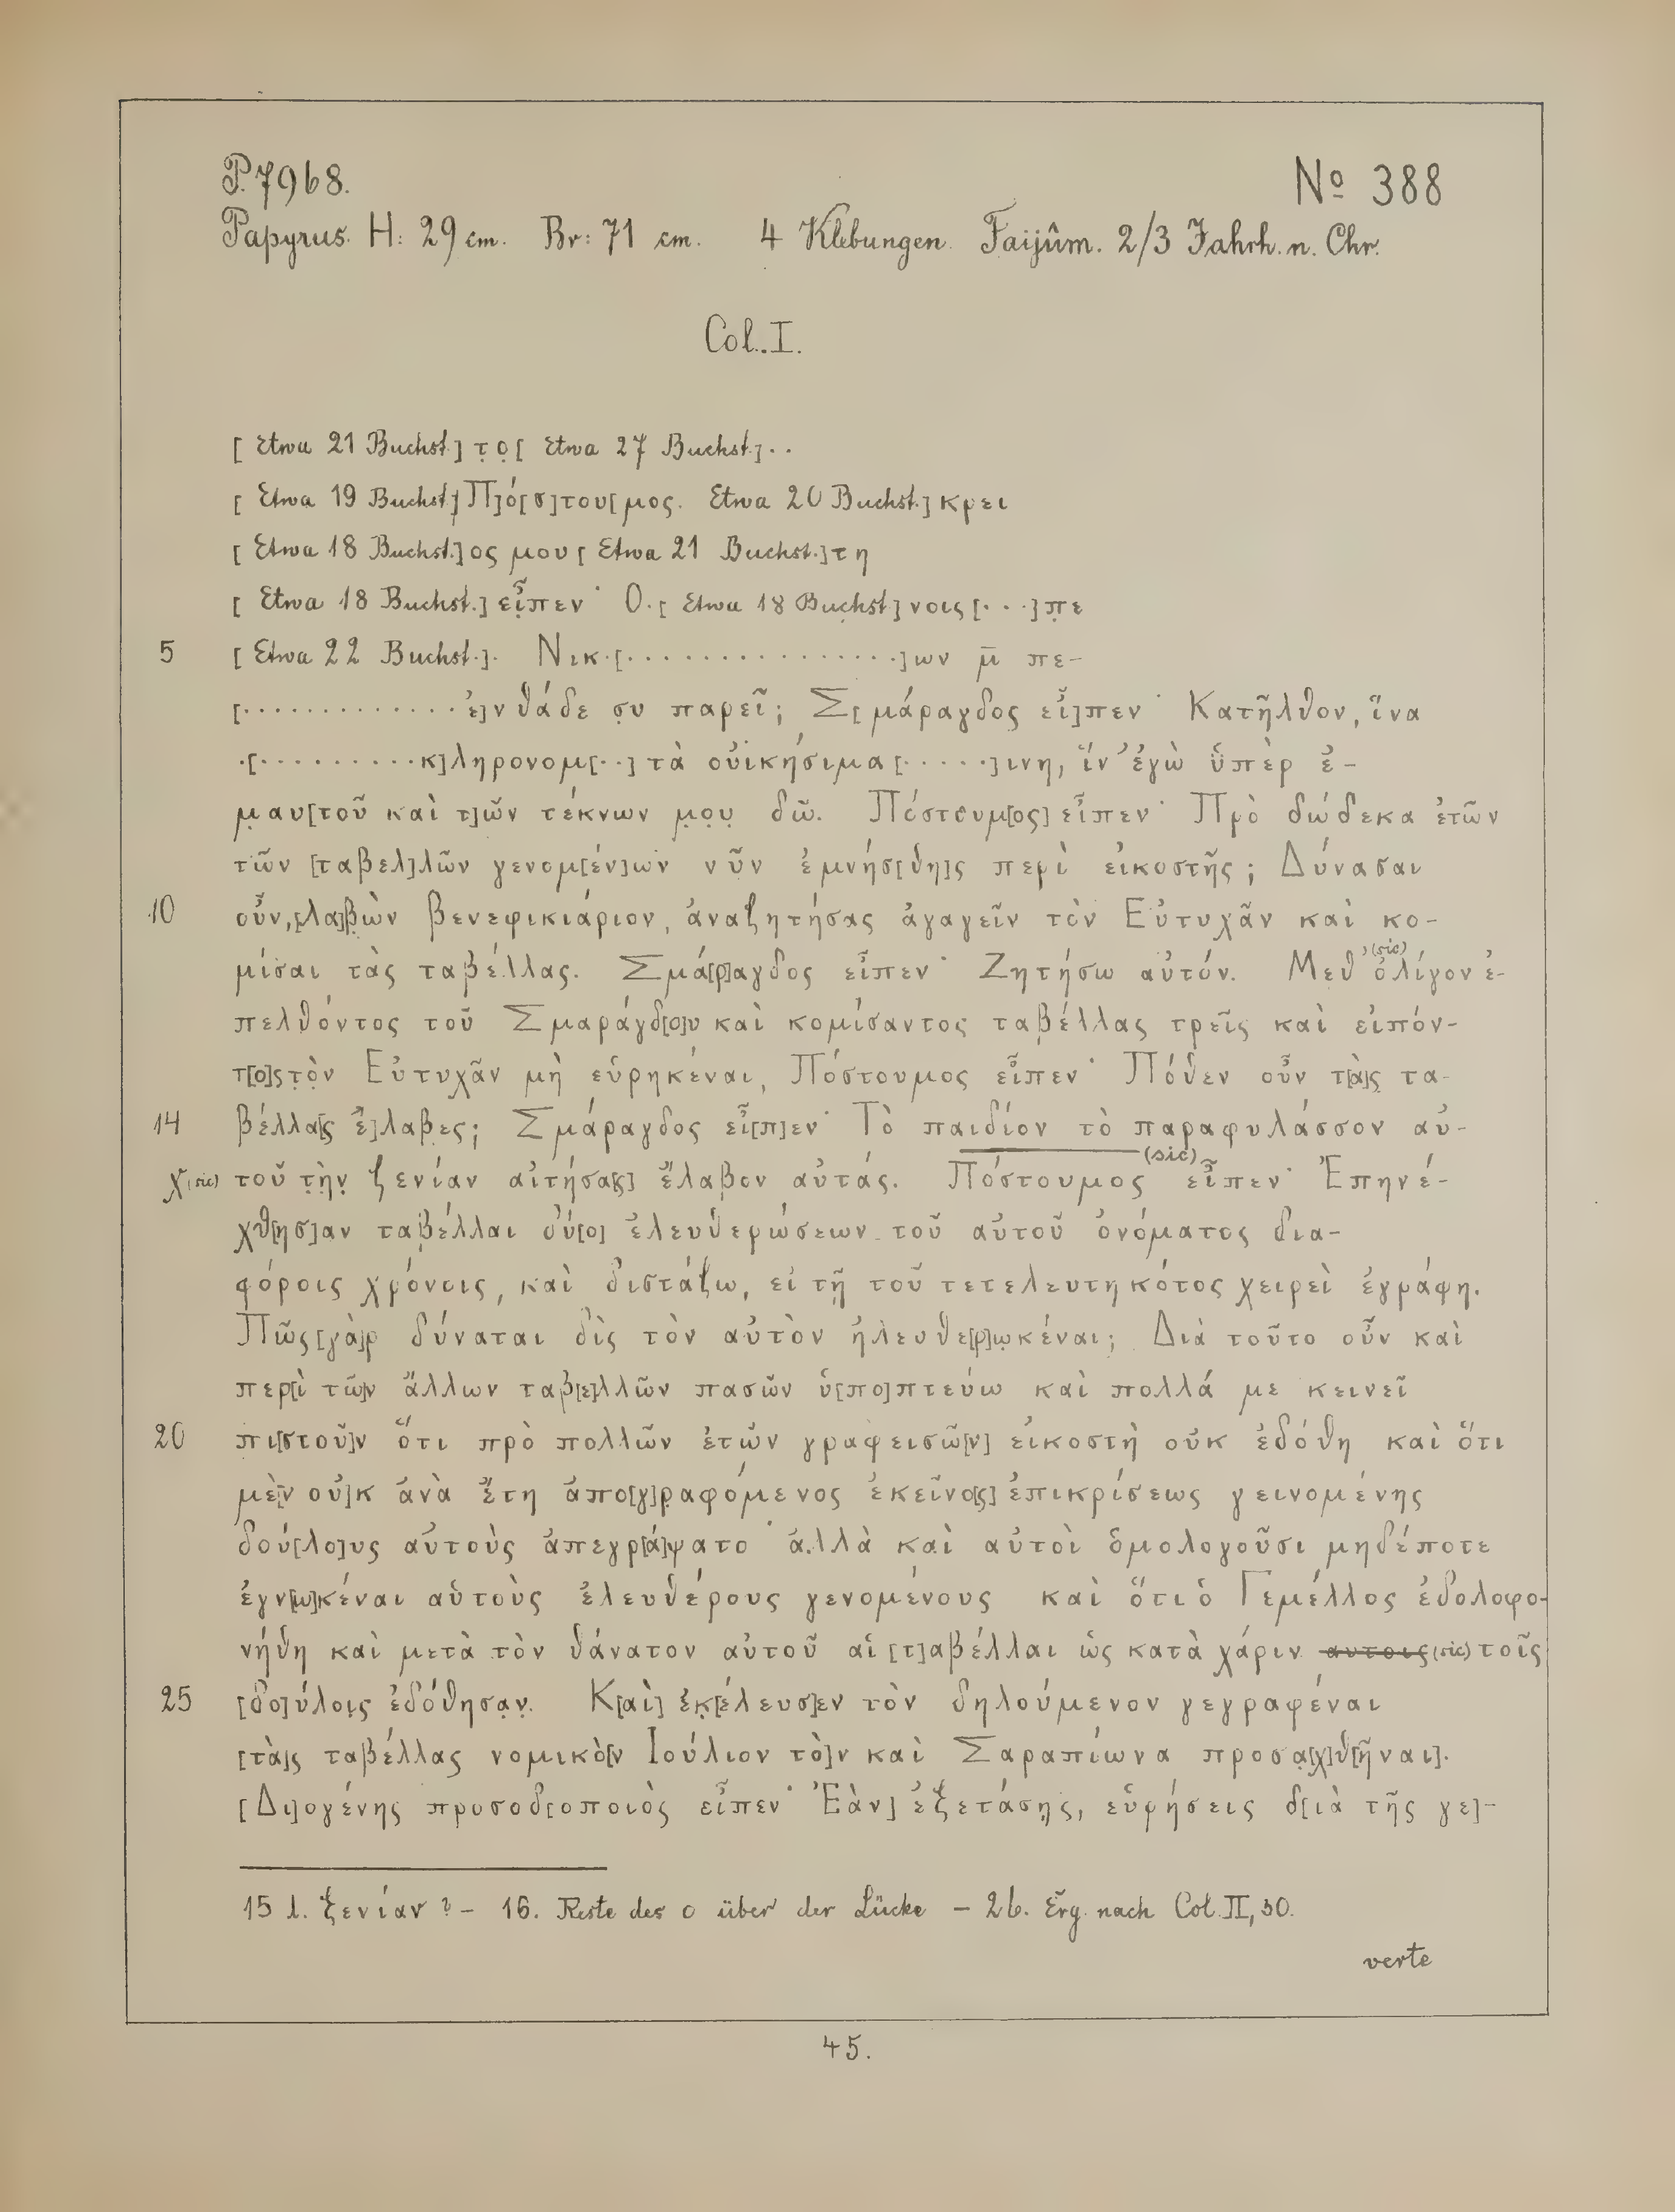 P. 7968.
Nº 388
Papyrus. H: 29 cm. Br: 71 cm. 4 Klebungen. Faijûm. 2/3 Jahrh. n. Chr.
Col. I.
[ Etwa 21 Buchst.] τ̣ο̣[ Etwa 27 Buchst.]..
[ Etwa 19 Buchst.] Π]ό[σ]του[μος. Etwa 20 Buchst.] κρει
[ Etwa 18 Buchst.]ος μου[ Etwa 21 Buchst.]τη
[ Etwa 18 Buchst.] εἶπεν˙ Ο.[ Etwa 18 Buchst.] νοις[...]π̣ε
5 [ Etwa 22 Buchst.]. Νικ.[...............]ων μ̄ πε-
[.............ἐ]νθάδε σ̣υ παρεῖ; Σ[μάραγδος εἶ]πεν˙ Κατῆλθον, ἵνα
.[..........κ]ληρονομ[..] τὰ οὐικήσιμα[.....]ινη, ἵν' ἐγὼ ὑπὲρ ἐ-
μ̣αυ[τοῦ καὶ τ]ῶν τέκνων μ̣ο̣υ̣ δῶ. Πόστουμ[ος] εἶπεν˙ Πρὸ δώδεκα ἐτῶν
τῶν [ταβελ]λῶν γενομ[έν]ων νῦν ἐμνήσ[θη]ς περὶ εἰκοστῆς; Δύνασαι
10 οὖν, [λα]β̣ὼν βενεφικιάριον, ἀναζητήσας ἀγαγεῖν τὸν Εὐτυχᾶν καὶ κο-
μίσαι τὰς ταβέλλας. Σμά[ρ]αγδος εἶπεν˙ Ζητήσω αὐτόν. Μεθ' (sic) ὀλίγον ἐ-
πελθόντος τοῦ Σμαράγδ[ο]υ καὶ κομίσαντος ταβέλλας τρεῖς καὶ εἰπόν-
τ[ο]ς τ̣ὸ̣ν Εὐτυχᾶν μὴ εὑρηκέναι, Πόστουμος εἶπεν˙ Πόθεν οὖν τ[ὰ]ς τα-
14 βέλλα[ς ἔ]λαβες; Σμάραγδος εἶ[π]εν˙ Τὸ παιδίον τὸ παραφυλάσσον αὐ-
χ (sic) τοῦ τ̣ὴ̣ν̣ ζενίαν αἰτήσα[ς] ἔλαβον αὐτάς. Πόστουμος (sic) εἶπεν˙ Ἐπηνέ-
χθ[ησ]αν ταβέλλαι δύ[ο] ἐλευθερώσεων τοῦ αὐτοῦ ὀνόματος δια-
φόροις χρόνοις, καὶ διστάζω, εἰ τῇ τοῦ τετελευτηκότος χειρεὶ ἐγράφη.
Πῶς [γὰ]ρ δύναται δὶς τὸν αὐτὸν ἠλευθε[ρ]ω̣κέναι; Διὰ τοῦτο οὖν καὶ
περ[ὶ τῶ]ν ἄλλων ταβ[ε]λλῶν πασῶν ὑ[πο]πτεύω καὶ πολλά με κεινεῖ
20 πι[στοῦ]ν ὅτι πρὸ πολλῶν ἐτῶν γραφεισῶ[ν] εἰκοστὴ οὐκ ἐδόθη καὶ ὅτι
μὲ[ν οὐ]κ ἀνὰ ἔτη ἀπο[γ]ραφόμενος ἐκεῖνο[ς] ἐπικρίσεως γεινομένης
δού[λο]υς αὐτοὺς ἀπεγρ[ά]ψατο˙ ἀλλὰ καὶ αὐτοὶ ὁμολογοῦσι μηδέποτε
ἐγν[ω]κέναι αὑτοὺς ἐλευθέρους γενομένους καὶ ὅτι ὁ Γεμέλλος ἐδολοφο-
νήθη καὶ μετὰ τὸν θάνατον αὐτοῦ αἱ [τ]αβέλλαι ὡς κατὰ χάριν αυτοις (sic) τοῖς
25 [δο]ύλοι̣ς ἐδόθησα̣ν̣. Κ[αὶ] ἐκ̣[έλευσ]εν τὸν δηλούμενον γεγραφέναι
[τὰ]ς ταβέλλας νομικὸ[ν Ἰούλιον τὸ]ν καὶ Σαραπίωνα προσα̣[χ]θ[ῆναι].
[Δι]ογένης προσοδ[οποιὸς εἶπεν˙ Ἐὰν] ἐξετάσῃς, εὑρήσεις δ[ιὰ τῆς γε]-
15 l. ξενίαν? – 16. Reste des ο über der Lücke – 26. Erg. nach Col. II, 30.
verte
45.